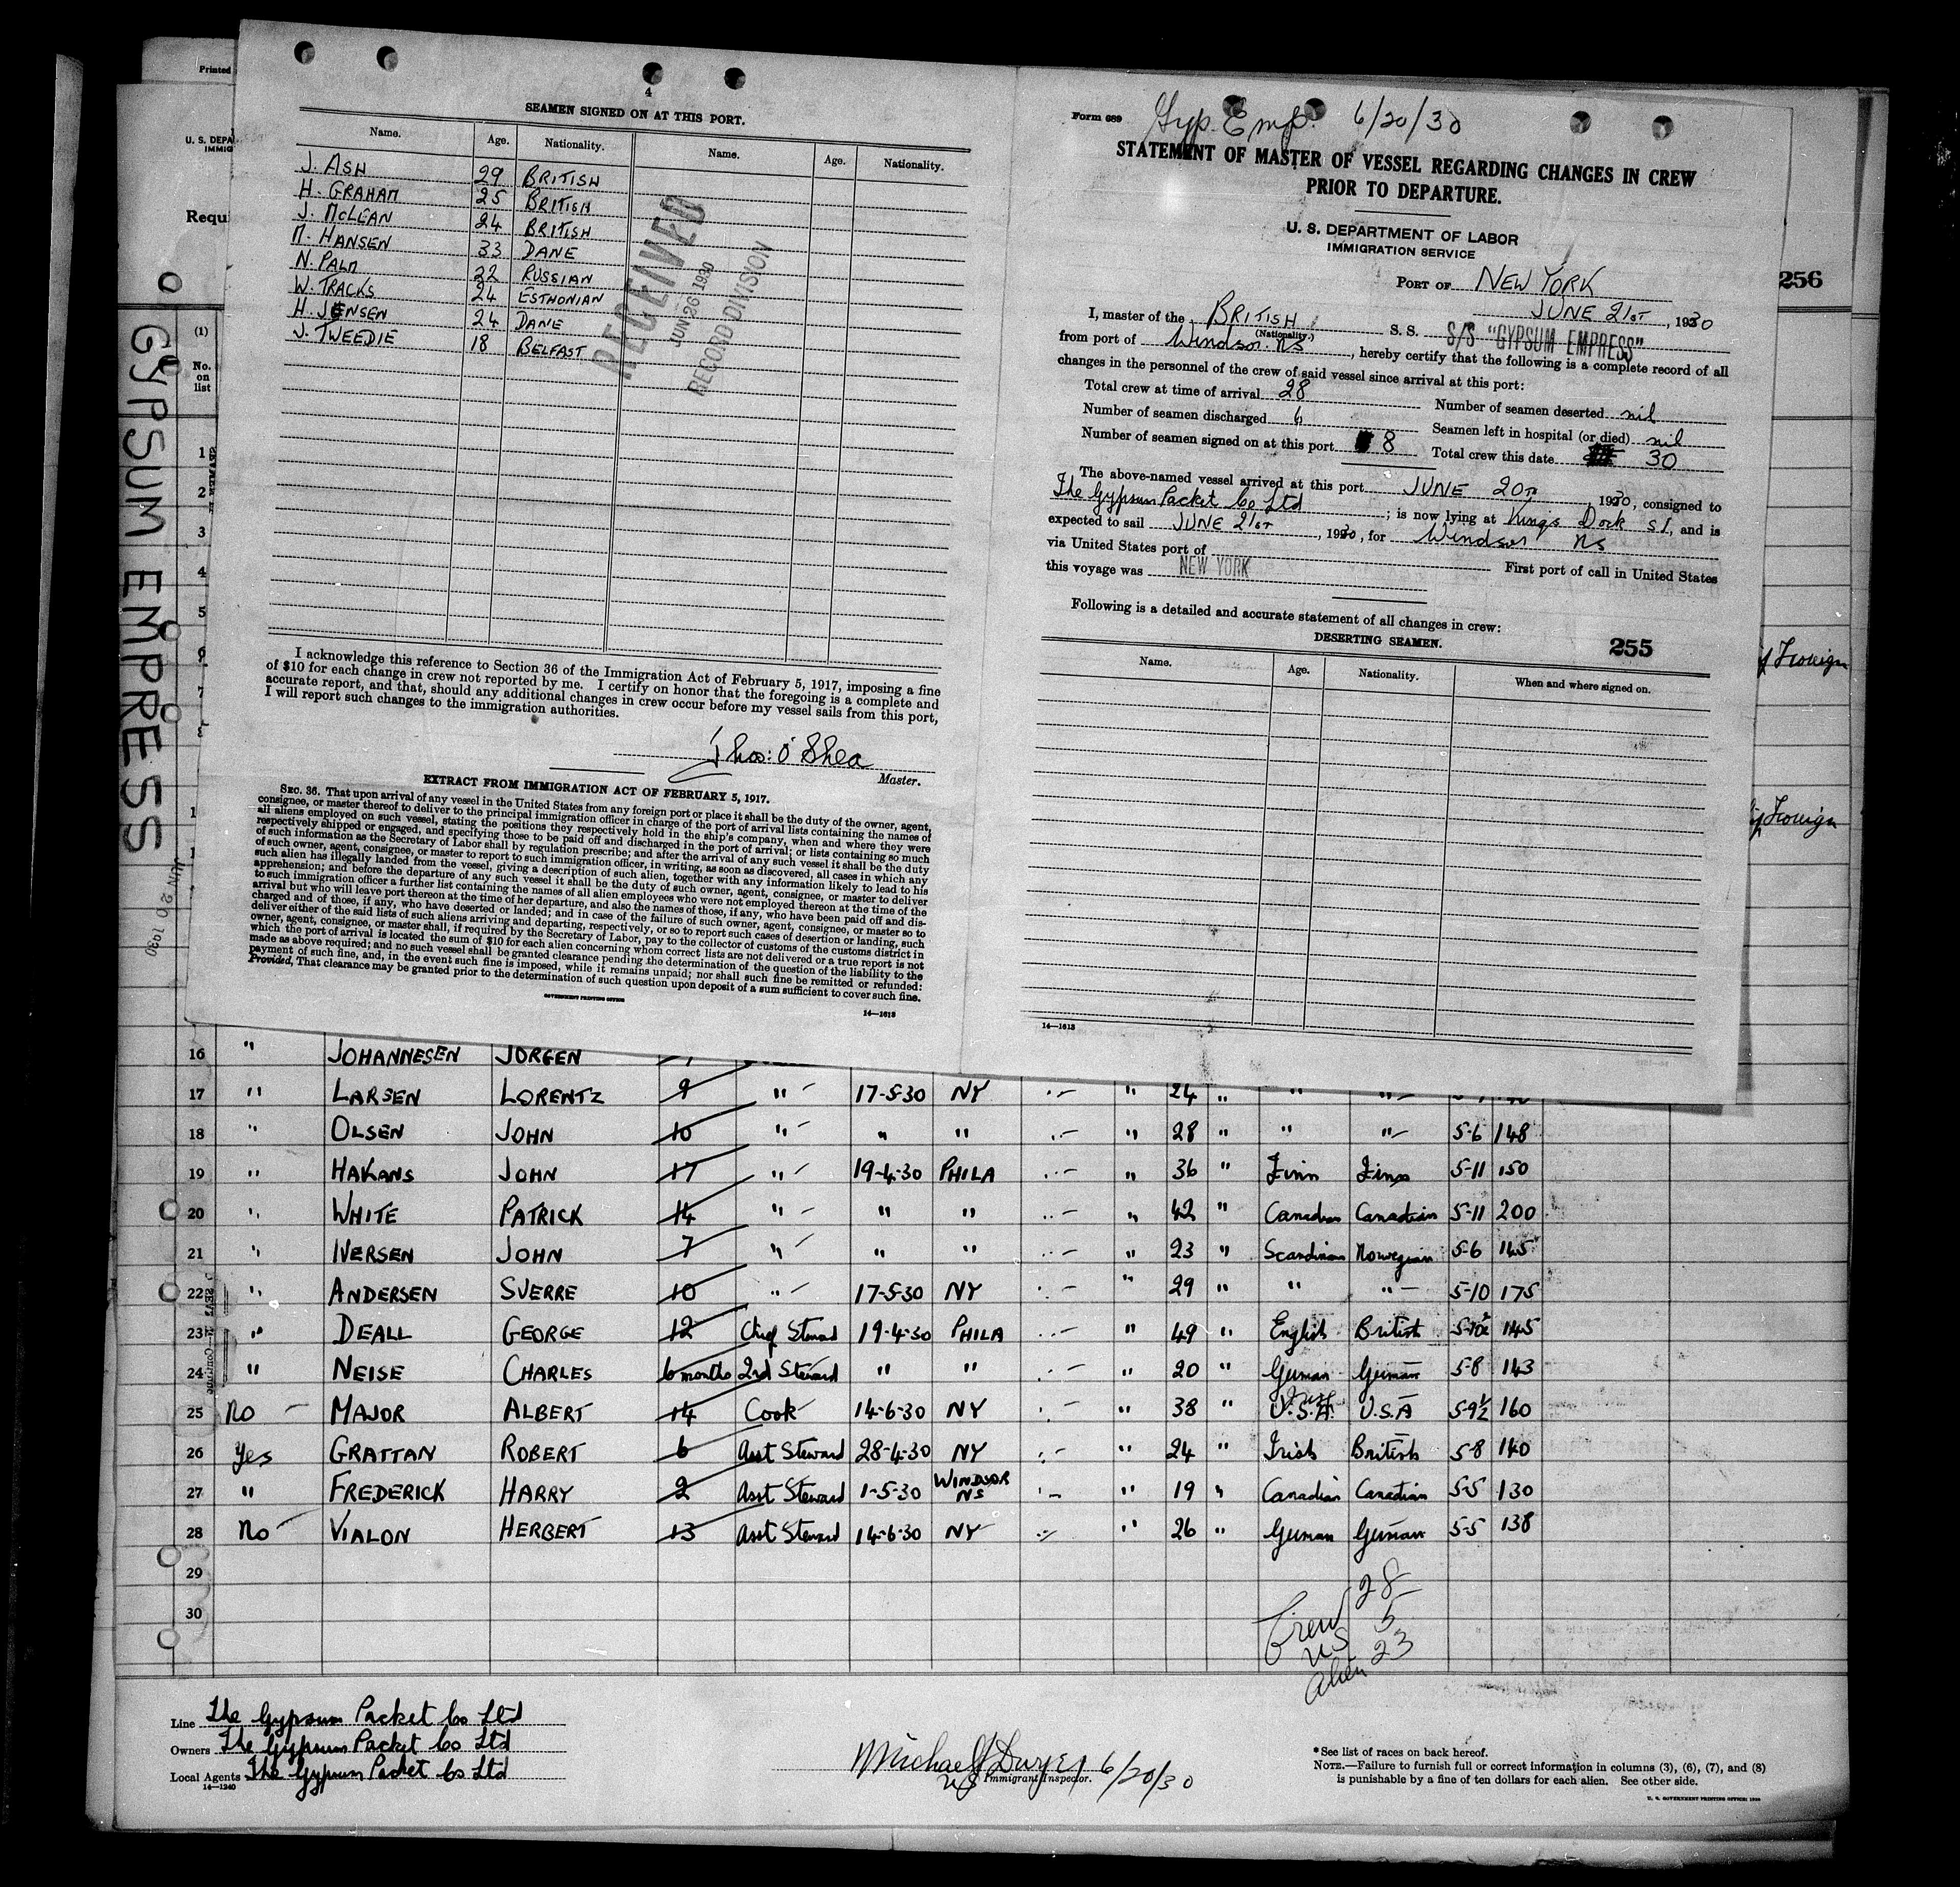 Printed
U. S. DEPA
IMMIG
Requ
(1)
No.
on
list
GYPSUM EMPRESS
JUN 20 1930
4
SEAMEN SIGNED ON AT THIS PORT.
Name. Age. Nationality. Name. Age. Nationality.
J. ASH 29 BRITISH
H. GRAHAM 25 BRITISH
J. McLEAN 24 BRITISH
M. HANSEN 33 DANE
N. PALM 22 RUSSIAN
W. TRACKS 24 ESTHONIAN
H. JENSEN 24 DANE
J. TWEEDIE 18 BELFAST
RECEIVED
JUN 26 1930
RECORD DIVISION
I acknowledge this reference to Section 36 of the Immigration Act of February 5, 1917, imposing a fine
of $10 for each change in crew not reported by me. I certify on honor that the foregoing is a complete and
accurate report, and that, should any additional changes in crew occur before my vessel sails from this port,
I will report such changes to the immigration authorities.
Thos: O'Shea
Master.
EXTRACT FROM IMMIGRATION ACT OF FEBRUARY 5, 1917.
SEC. 36. That upon arrival of any vessel in the United States from any foreign port or place it shall be the duty of the owner, agent,
consignee, or master thereof to deliver to the principal immigration officer in charge of the port of arrival lists containing the names of
all aliens employed on such vessel, stating the positions they respectively hold in the ship's company, when and where they were
respectively shipped or engaged, and specifying those to be paid off and discharged in the port of arrival; or lists containing so much
of such information as the Secretary of Labor shall by regulation prescribe; and after the arrival of any such vessel it shall be the duty
of such owner, agent, consignee, or master to report to such immigration officer, in writing, as soon as discovered, all cases in which any
such alien has illegally landed from the vessel, giving a description of such alien, together with any information likely to lead to his
apprehension; and before the departure of any such vessel it shall be the duty of such owner, agent, consignee, or master to deliver
to such immigration officer a further list containing the names of all alien employees who were not employed thereon at the time of the
arrival but who will leave port thereon at the time of her departure, and also the names of those, if any, who have been paid off and dis-
charged and of those, if any, who have deserted or landed; and in case of the failure of such owner, agent, consignee, or master so to
deliver either of the said lists of such aliens arriving and departing, respectively, or so to report such cases of desertion or landing, such
owner, agent, consignee, or master shall, if required by the Secretary of Labor, pay to the collector of customs of the customs district in
which the port of arrival is located the sum of $10 for each alien concerning whom correct lists are not delivered or a true report is not
made as above required; and no such vessel shall be granted clearance pending the determination of the question of the liability to the
payment of such fine, and, in the event such fine is imposed, while it remains unpaid; nor shall such fine be remitted or refunded:
Provided, That clearance may be granted prior to the determination of such question upon deposit of a sum sufficient to cover such fine.
GOVERNMENT PRINTING OFFICE
14—1613
Form 689
Gyp. Emp. 6/20/30
STATEMENT OF MASTER OF VESSEL REGARDING CHANGES IN CREW
PRIOR TO DEPARTURE.
U. S. DEPARTMENT OF LABOR
IMMIGRATION SERVICE
PORT OF NEW YORK
JUNE 21ST, 1930
I, master of the BRITISH S. S. S/S "GYPSUM EMPRESS"
(Nationality.)
from port of Windsor. NS, hereby certify that the following is a complete record of all
changes in the personnel of the crew of said vessel since arrival at this port:
Total crew at time of arrival 28 Number of seamen deserted nil
Number of seamen discharged 6 Seamen left in hospital (or died) nil
Number of seamen signed on at this port 8 Total crew this date 30
The above-named vessel arrived at this port JUNE 20TH, 1930, consigned to
The Gypsum Packet Co Ltd; is now lying at Kings Dock S I, and is
expected to sail JUNE 21ST, 1930, for Windsor NS
via United States port of First port of call in United States
this voyage was NEW YORK
Following is a detailed and accurate statement of all changes in crew:
DESERTING SEAMEN. 255
Name. Age. Nationality. When and where signed on.
14—1613
256
Foreign
Foreign
1
2
3
4
5
6
7
16 " JOHANNESEN JORGEN
17 " LARSEN LORENTZ 9 " 17-5-30 NY " 24 " "
18 " OLSEN JOHN 10 " " " " 28 " " " 5-6 148
19 " HAKANS JOHN 17 " 19-4-30 PHILA " 36 " Finn Finn 5-11 150
20 " WHITE PATRICK 14 " " " " 42 " Canadian Canadian 5-11 200
21 " IVERSEN JOHN 7 " " " " 23 " Scandinavn Norwegian 5-6 145
22 " ANDERSEN SVERRE 10 " 17-5-30 NY " 29 " " " 5-10 175
23 " DEALL GEORGE 12 Chief Steward 19-4-30 PHILA " 49 " English British 5-10½ 145
24 " NEISE CHARLES 6 months 2nd Steward " " " 20 " German German 5-8 143
25 No MAJOR ALBERT 14 Cook 14-6-30 NY " 38 " U.S.A. U.S.A 5-9½ 160
26 Yes GRATTAN ROBERT 6 Asst Steward 28-4-30 NY " 24 " Irish British 5-8 140
27 " FREDERICK HARRY 2 Asst Steward 1-5-30 WINDSOR NS " 19 " Canadian Canadian 5-5 130
28 No VIALON HERBERT 13 Asst Steward 14-6-30 NY " 26 " German German 5-5 138
29
30
Crew 28
US 5
Alien 23
Line The Gypsum Packet Co Ltd
Owners The Gypsum Packet Co Ltd
Local Agents The Gypsum Packet Co Ltd
14—1240
Michael J Dwyer 6/20/30
US Immigrant Inspector.
*See list of races on back hereof.
NOTE.—Failure to furnish full or correct information in columns (3), (6), (7), and (8)
is punishable by a fine of ten dollars for each alien. See other side.
U. S. GOVERNMENT PRINTING OFFICE: 1930